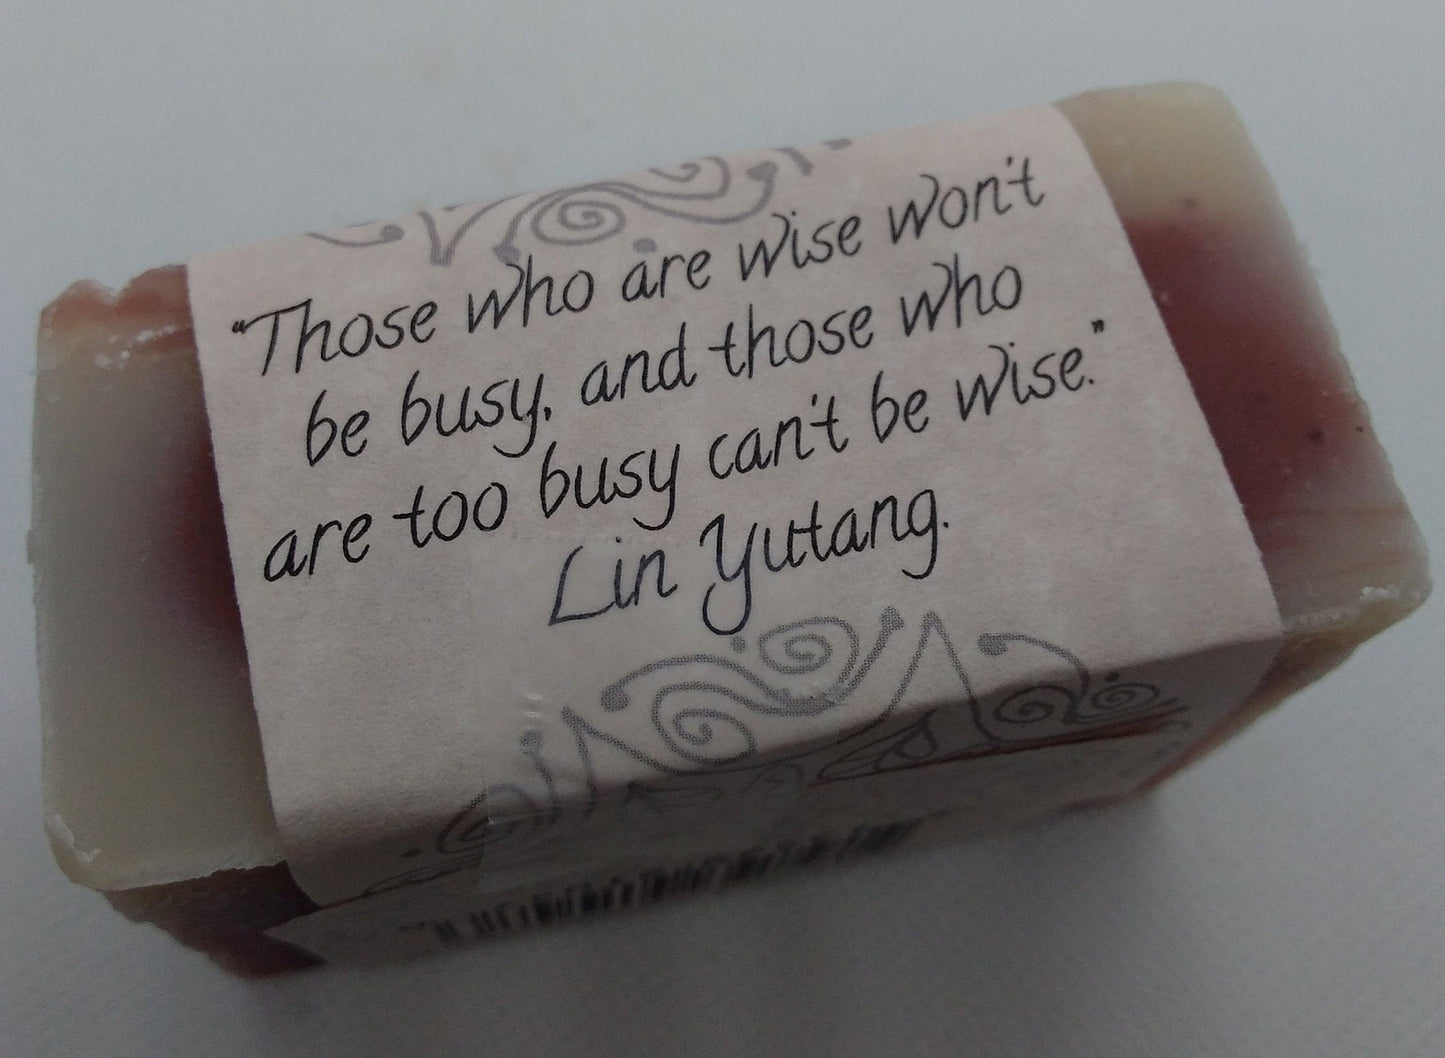 "Those who are wise won't
be busy, and those who
are too busy can't be wise."
Lin Yutang.